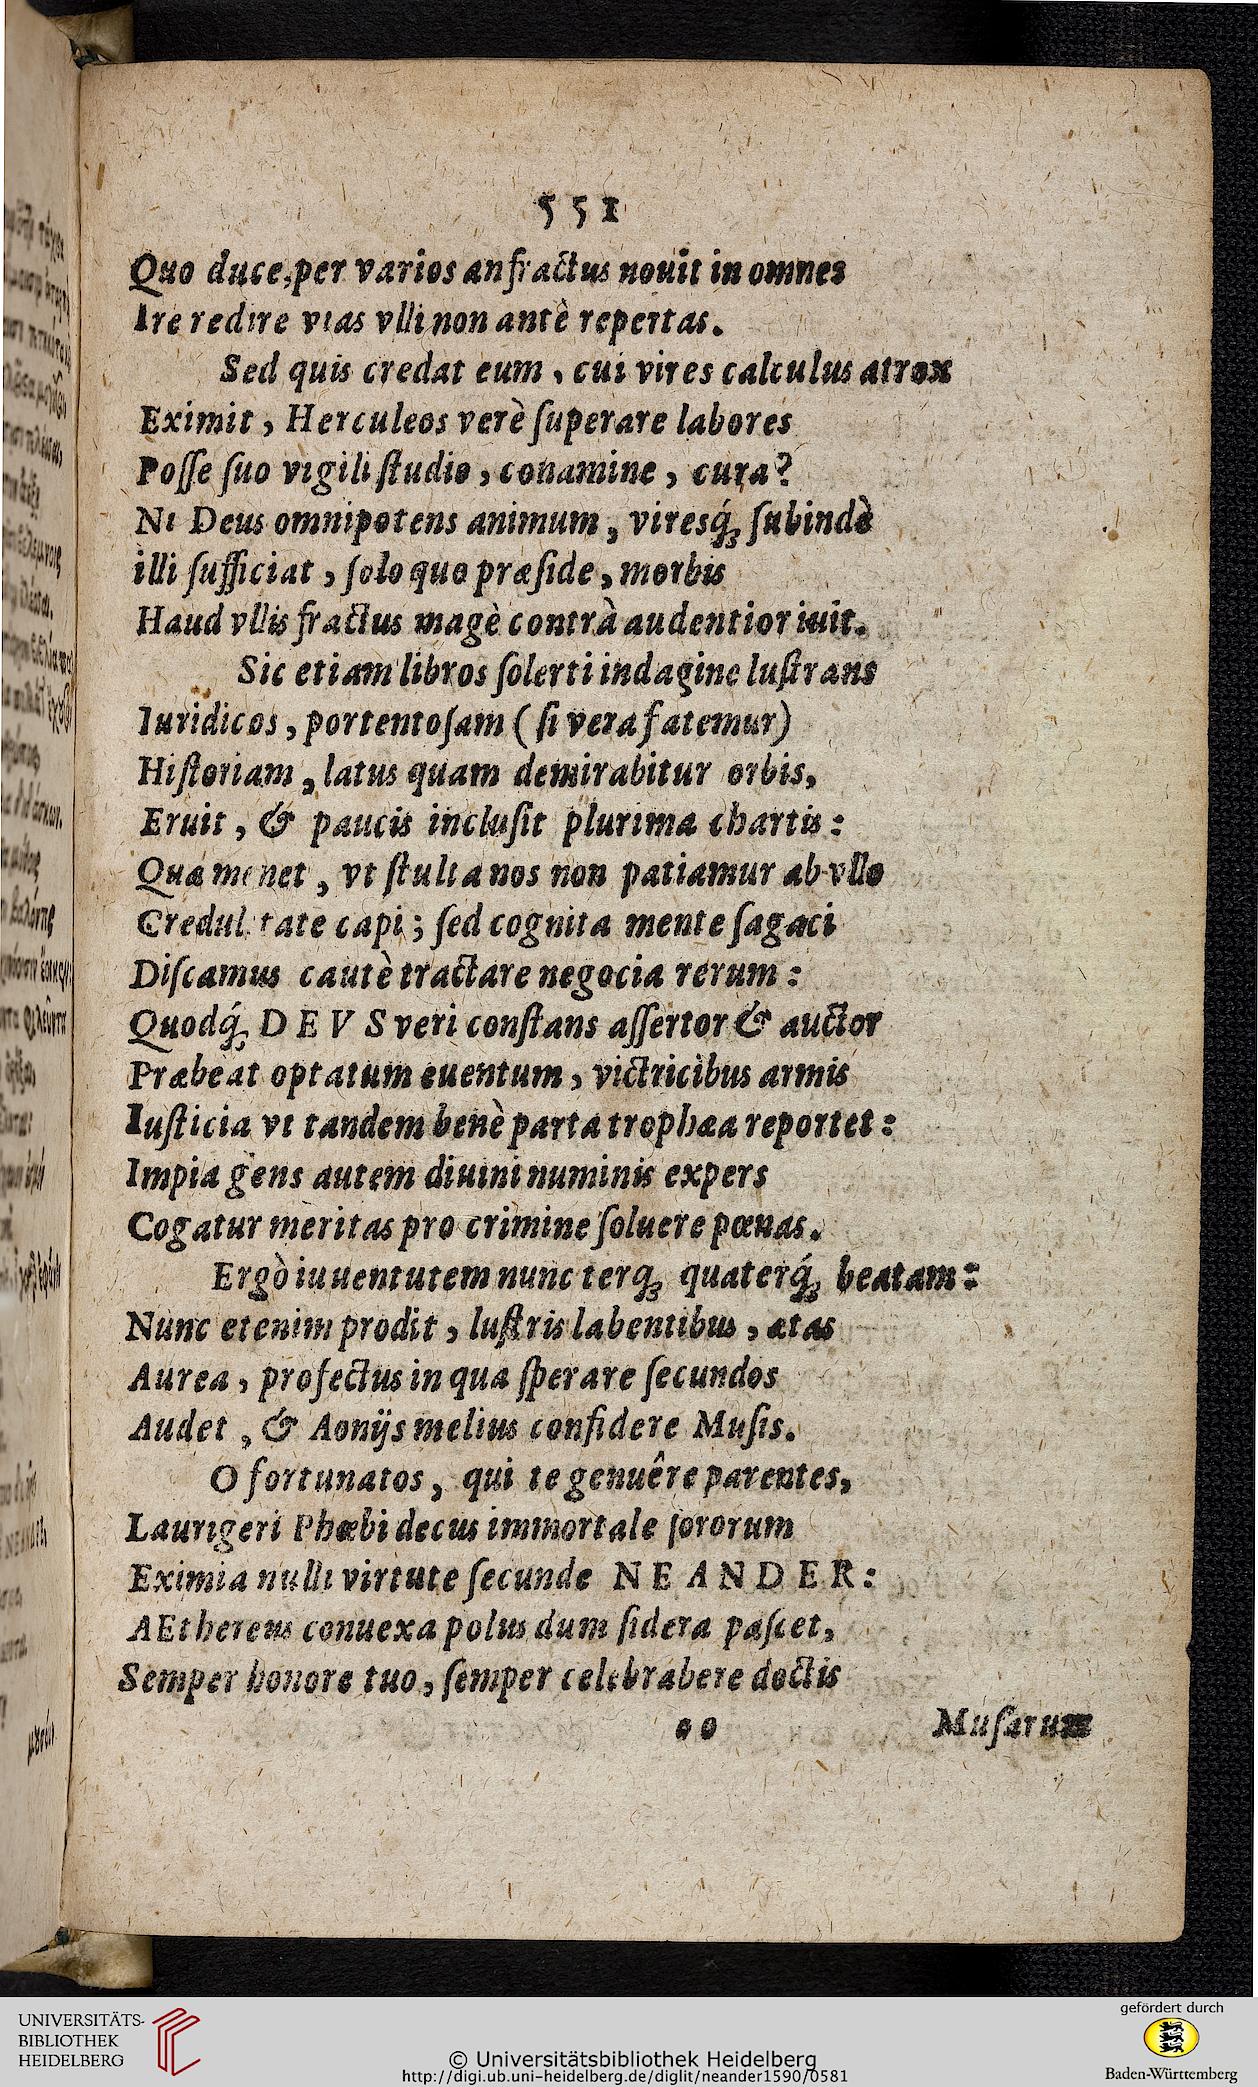 551
Quo duce, per varios anfractus nouit in omnes
Ire redire vias vlli non antè repertas.
Sed quis credat eum, cui vires calculus atrox
Eximit, Herculeos verè ſuperare labores
Poſſe ſuo vigili ſtudio, conamine, cura?
Ni Deus omnipotens animum, viresq́; ſubindè
illi ſufficiat, ſolo quo præſide, morbis
Haud vllis fractus magè contrà audentior iuit.
Sic etiam libros ſolerti indagine luſtrans
Iuridicos, portentoſam (ſi vera fatemur)
Hiſtoriam, latus quam demirabitur orbis,
Eruit, & paucis incluſit plurima chartis:
Quæ menet, vt ſtulta nos non patiamur ab vllo
Credulitate capi; ſed cognita mente ſagaci
Diſcamus cautè tractare negocia rerum:
Quodq́; DEVS veri conſtans aſſertor & auctor
Præbeat optatum euentum, victricibus armis
Iuſticia vt tandem benè parta trophæa reportet:
Impia gens autem diuini numinis expers
Cogatur meritas pro crimine ſoluere pœnas.
Ergò iuuentutem nunc terq; quaterq́; beatam:
Nunc etenim prodit, luſtris labentibus, ætas
Aurea, profectus in qua ſperare ſecundos
Audet, & Aonijs melius confidere Muſis.
O fortunatos, qui te genuêre parentes,
Laurigeri Phœbi decus immortale ſororum
Eximia nulli virtute ſecunde NEANDER:
AEthereus conuexa polus dum ſidera paſcet,
Semper honore tuo, ſemper celebrabere doctis
oo Muſarum
UNIVERSITÄTS-
BIBLIOTHEK
HEIDELBERG
© Universitätsbibliothek Heidelberg
http://digi.ub.uni-heidelberg.de/diglit/neander1590/0581
gefördert durch
Baden-Württemberg